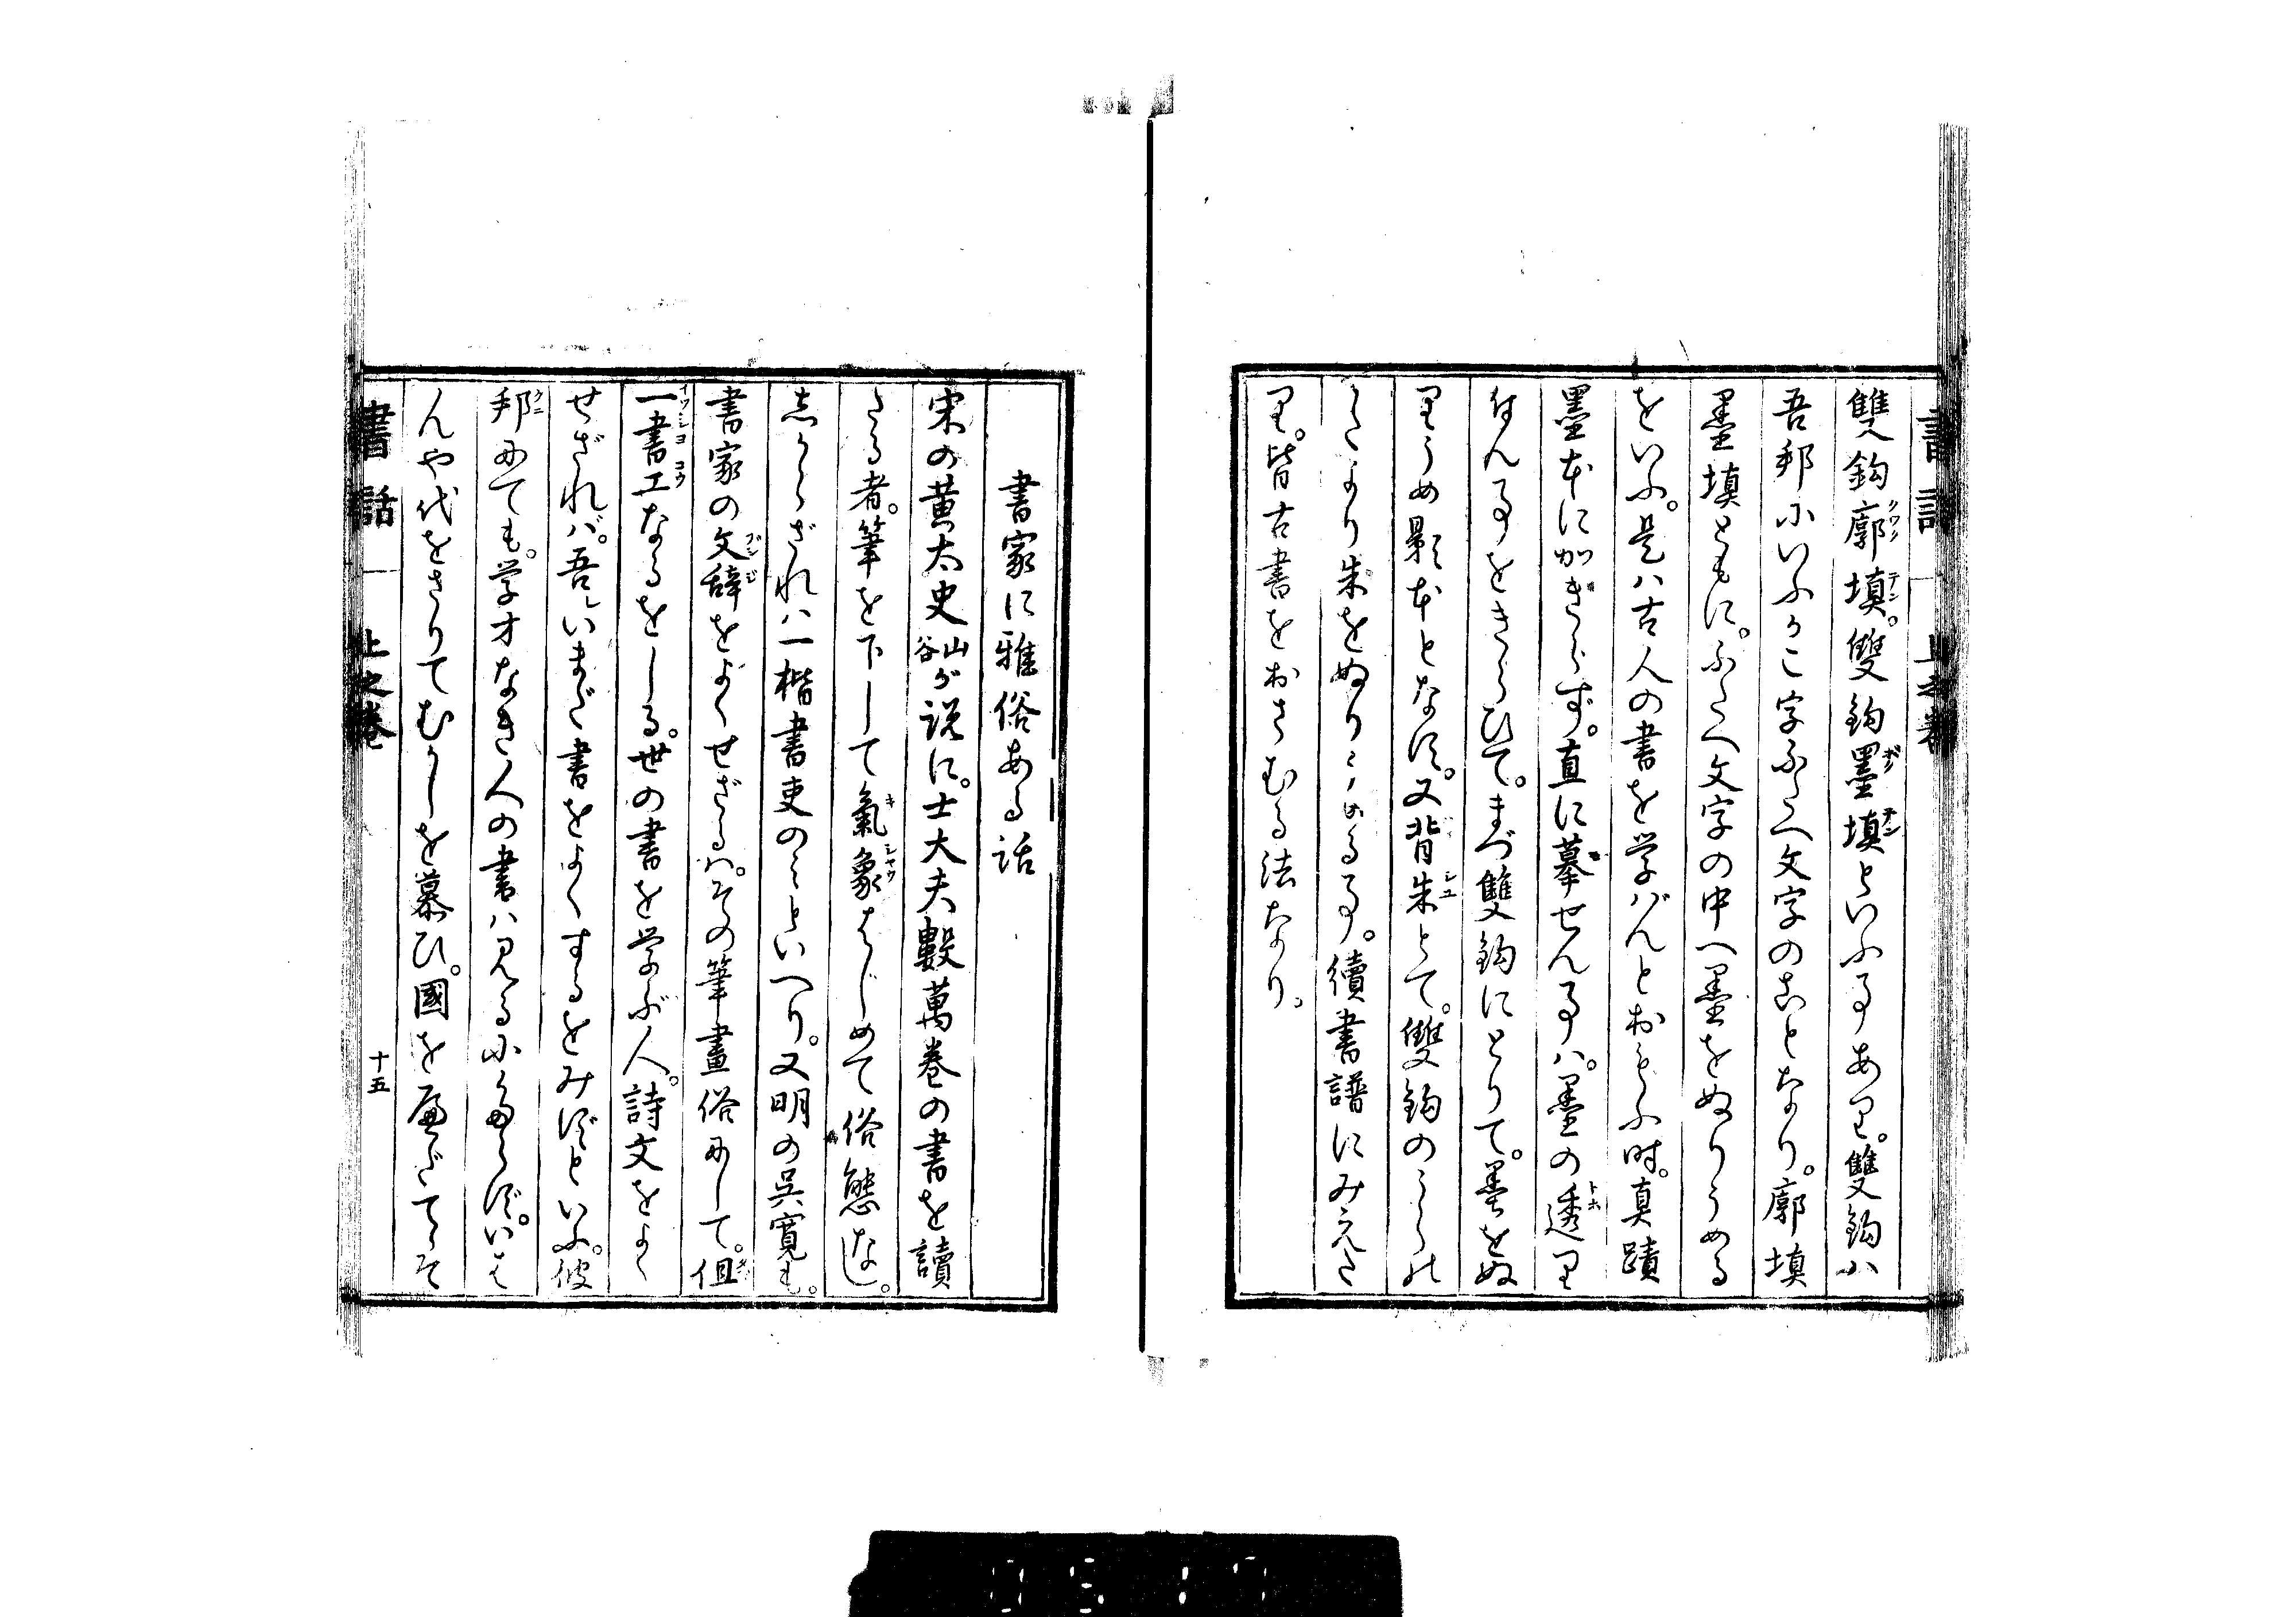 雙鈎廓填。雙鈎墨填といふ事あり。雙鈎ハ
吾邦にいふかご字ふたへ文字のことなり。廓填
墨填ともに。ふたへ文字の中へ墨をぬりうめる
をいふ。是ハ古人の書を学バんとおもふ時。真蹟
墨本にかぎらず。直に摹せん事ハ。墨の透り
なん事をきらひて。まづ雙鈎にとりて。墨をぬ
りうめ影本となす。又背朱とて。雙鈎のうらの
かたより朱をぬり
る事。續書譜にみえた
り。皆古書をおさむる法なり。
書家に雅俗ある話
宋の黄太史山谷が説に。士大夫數萬巻の書を讀
たる者。筆を下して氣象はじめて俗態なし。
しからざれハ一楷書吏のみといへり。又明の呉寛も。
書家の文辞をよくせざるハ。その筆畫俗にして。但
一書工なるをしる。世の書を学ぶ人。詩文をよく
せざれバ。吾いまだ書をよくするをみずといふ。彼
邦にても。学才なき人の書ハ見るにたらず。いは
んや代をさりてむかしを慕ひ。國をへだてゝそ
書話
上之巻
十五